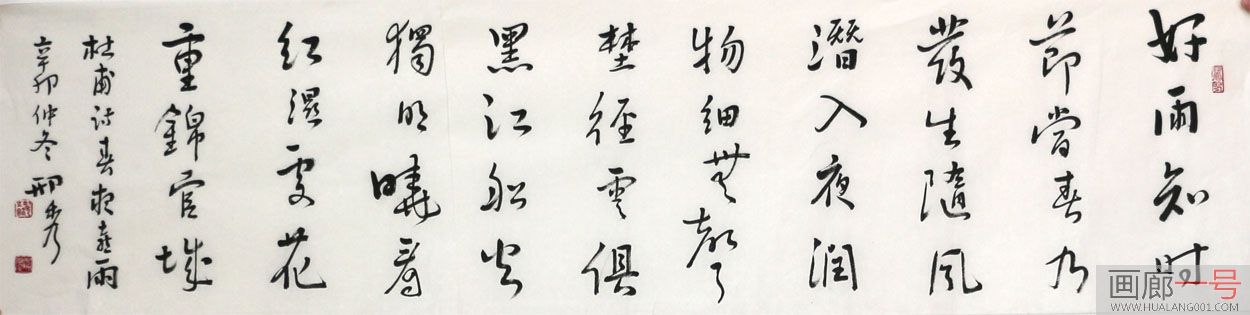 好雨知时
節當春乃
發生隨風
潛入夜潤
物細無聲
埜徑雲俱
黑江船火
獨明曉看
紅濕處花
重錦官城
杜甫詩春夜喜雨
辛卯仲冬 邢
画廊一号
WWW.HUALANG001.COM